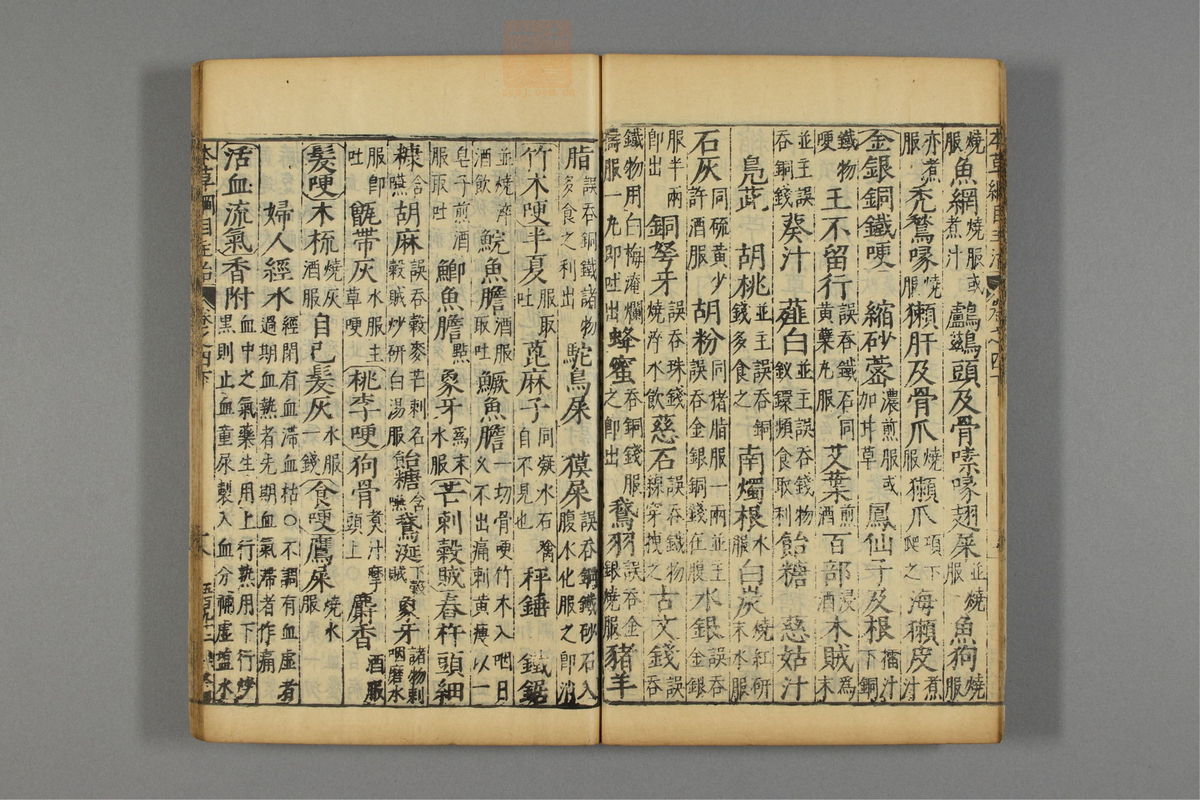 本草綱目主治 卷之四下
燒服魚網燒服或煮汁鸕鷀頭及骨嗉喙翅屎並燒服魚狗燒服
亦煮服禿鶖喙燒服獺肝及骨爪燒服獺爪項下爬之海獺皮煮汁服
金銀銅鐵哽 縮砂蔤濃煎服或加甘草鳳仙子及根擂汁下銅
鐵物哽王不留行誤吞鐵石同黃蘗丸服艾葉煎酒百部浸酒木賊為末
並主誤吞銅錢葵汁 薤白並主誤吞錢物釵環頻食取利飴糖 慈姑汁
鳧茈 胡桃並主誤吞銅錢多食之南燭根水服白炭燒紅研末水服
石灰同硫黃少許酒服胡粉同猪脂服一兩並主誤吞金銀銅錢在腹水銀誤吞金銀
服半兩即出銅弩牙誤吞珠錢燒淬水飲慈石誤吞鐵物線穿拽之古文錢誤吞
鐵物用白梅淹爛擣服一丸即吐出蜂蜜吞銅錢服之即出鵞羽誤吞金銀燒服豬羊
脂誤吞銅鐵諸物多食之利出駝鳥屎 獏屎誤吞銅鐵砂石入腹水化服之即消
竹木哽半夏服取吐蓖麻子同凝水石噙自不見也秤錘 鐵鋸
並燒淬酒飲鯇魚膽酒服取吐鱖魚膽一切骨哽竹木入咽日久不出痛刺黃瘦以一
皂子煎酒服取吐鯽魚膽點象牙為末水服芒刺穀賊舂杵頭細
糠含嚥胡麻誤吞穀麥芒刺名穀賊炒研白湯服飴糖含嚥鵞涎下穀賊象牙諸物刺咽磨水
服即吐甑帶灰水服主草哽桃李哽狗骨煮汁摩頭上麝香酒服
髮哽木梳燒灰酒服自己髮灰水服一錢食哽鷹屎燒水服
婦人經水經閉有血滯血枯○不調有血虛者過期血熱者先期血氣滯者作痛
活血流氣香附血中之氣藥生用上行熟用下行炒黑則止血童尿製入血分補虛鹽水
本草綱目主治 卷之四下